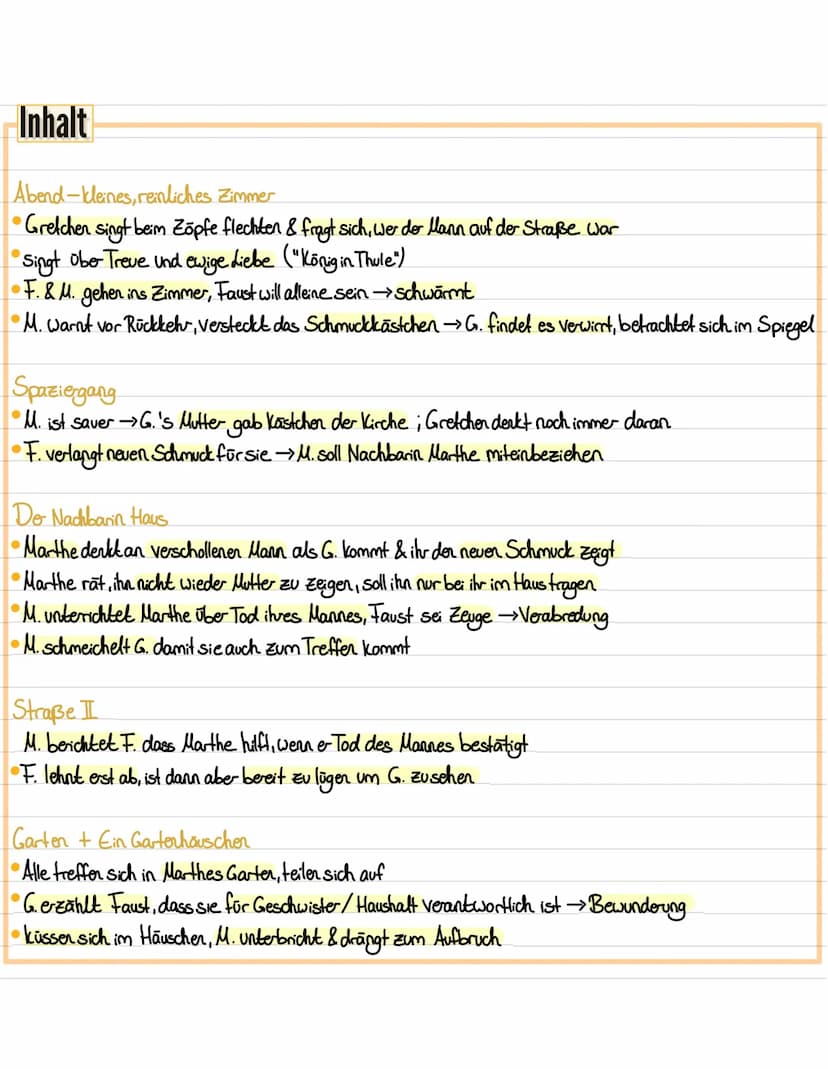 Inhalt
Abend-kleines, reinliches Zimmer
• Gretchen singt beim Zöpfe flechten & fragt sich, wer der Mann auf der Straße war
• singt über Treue und ewige Liebe ("König in Thule")
• F. & M. gehen ins Zimmer, Faust will alleine sein → schwärmt
• M. warnt vor Rückkehr, versteckt das Schmuckkästchen → G. findet es verwirrt, betrachtet sich im Spiegel
Spaziergang
• M. ist sauer → G.'s Mutter gab Kästchen der Kirche ; Gretchen denkt noch immer daran
• F. verlangt neuen Schmuck für sie → M. soll Nachbarin Marthe miteinbeziehen
Der Nachbarin Haus
• Marthe denkt an verschollenen Mann als G. kommt & ihr den neuen Schmuck zeigt
• Marthe rät, ihn nicht wieder Mutter zu zeigen, soll ihn nur bei ihr im Haus tragen
• M. unterrichtet Marthe über Tod ihres Mannes, Faust sei Zeuge → Verabredung
• M. schmeichelt G. damit sie auch zum Treffen kommt
Straße II
M. berichtet F. dass Marthe hilft, wenn er Tod des Mannes bestätigt
• F. lehnt erst ab, ist dann aber bereit zu lügen um G. zu sehen
Garten + Ein Gartenhäuschen
• Alle treffen sich in Marthes Garten, teilen sich auf
• G. erzählt Faust, dass sie für Geschwister/Haushalt verantwortlich ist → Bewunderung
• küssen sich im Häuschen, M. unterbricht & drängt zum Aufbruch